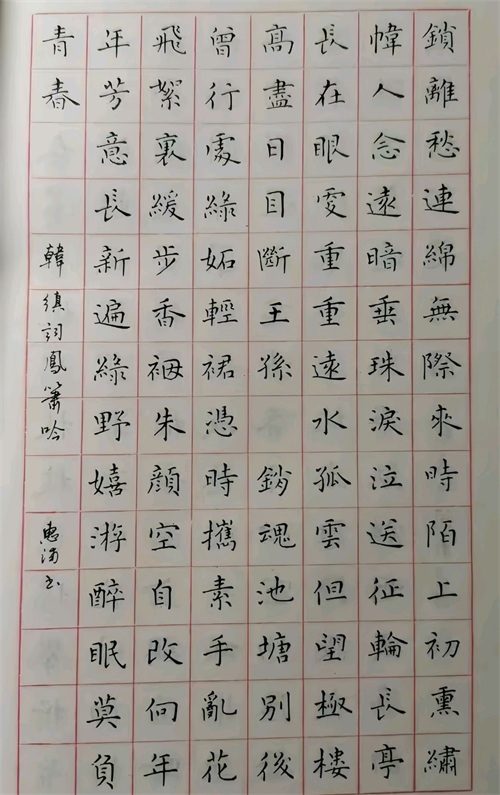 鎖離愁連綿無際來時陌上初熏繡
幃人念遠暗垂珠淚泣送征輪長亭
長在眼雯重重遠水孤雲但望極樓
髙盡日目斷王孫 銷魂池塘別後
曾行處綠妬輕裙憑時攜素手亂花
飛絮裏緩步香裀朱顏空自改向年
年芳意長新遍綠野嬉游醉眠莫負
青春
韓縝詞鳳簫吟